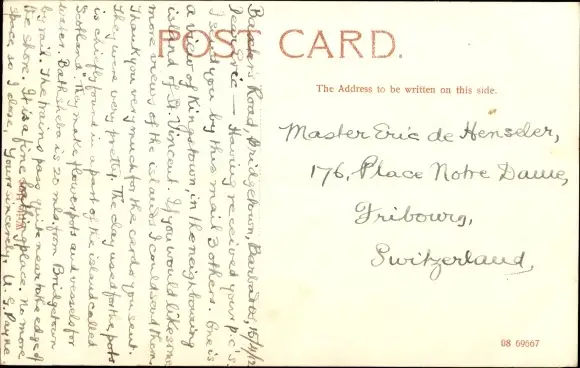 POST CARD.
The Address to be written on this side.
Master Eric de Henseler,
176, Place Notre Dame,
Fribourg,
Switzerland,
08 69667
Road, Bridgetown, Barbados, 15/4/12
Dear Eric — Having received your p.c.'s.
I send you by this mail 3 others. One is
a view of Kingstown, in the neighbouring
island of St. Vincent. If you would like some
more views of the island I could send them.
Thank you very much for the cards you sent.
They were very pretty. The clay used for the pots
is chiefly found in a part of the island called
"Scotland" they make flowerpots and vessels for
water. Bathsheba is 20 mls. from Bridgetown
by rail. The trains pass quite near to the edge of
the shore. It is a fine place. No more
space, so I close, Yours sincerely, U. G. Payne.